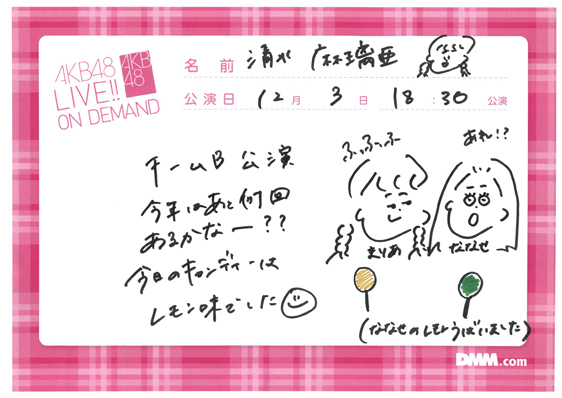 AKB48
LIVE!!
ON DEMAND
AKB
48
名前 清水 麻璃亜
公演日 12月 3日 18:30 公演
チームB 公演
今年はあと何回
あるかなー??
今日のキャンディーは
レモン味でした
ふっふっふ
あれ!?
まりあ
ななせ
(ななせのレモンうばいました)
DMM.com